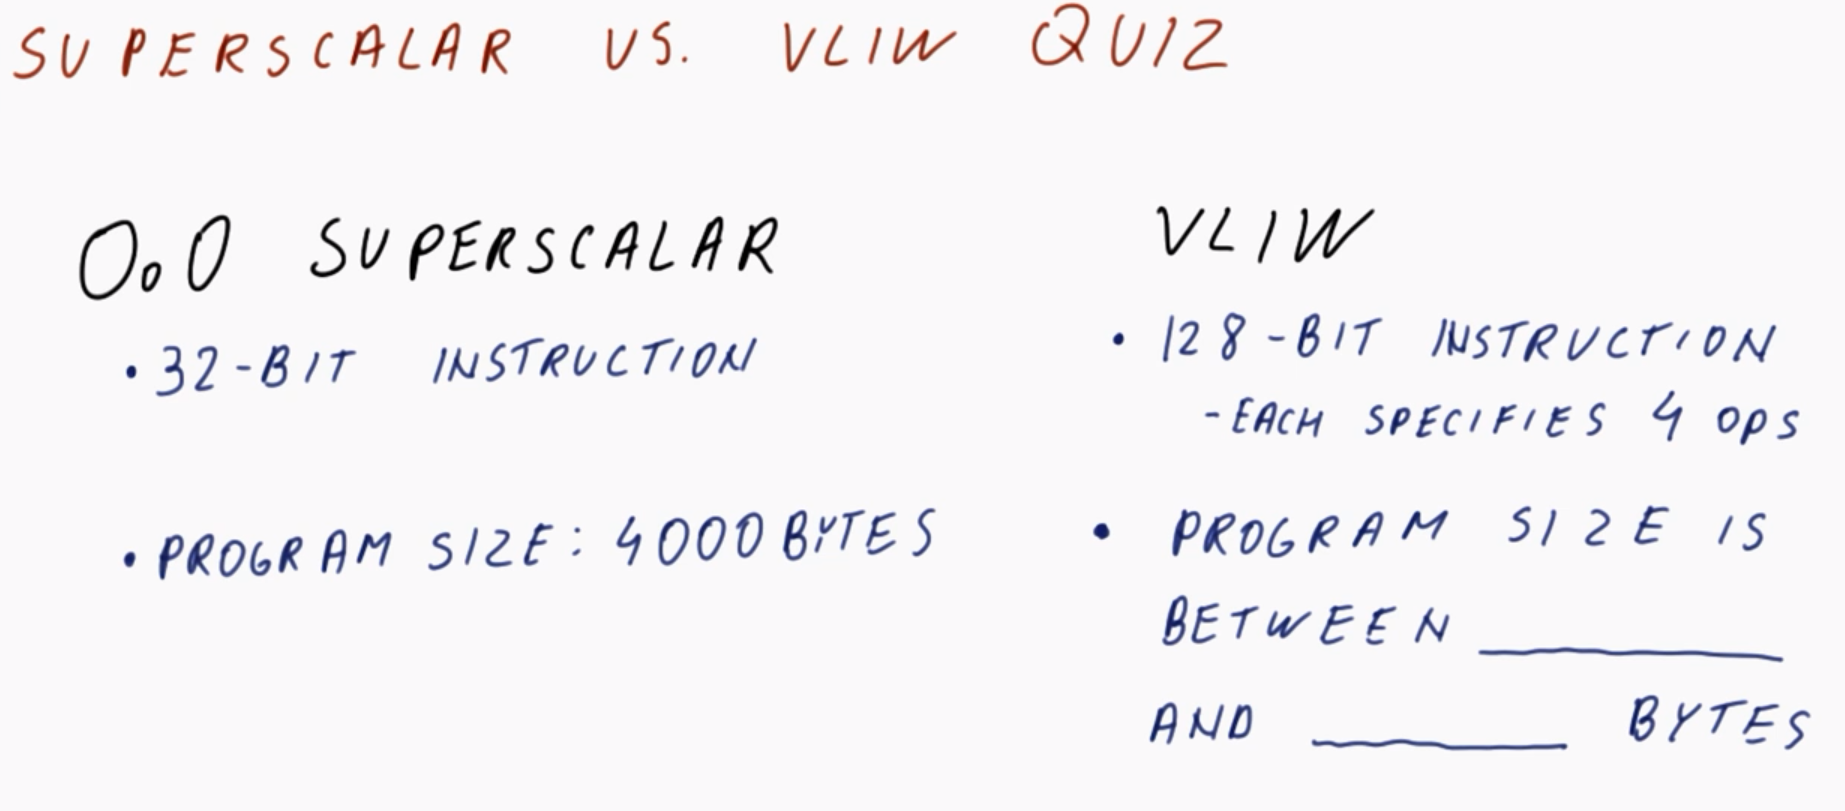 SUPERSCALAR VS. VLIW QUIZ
OoO SUPERSCALAR
• 32-BIT INSTRUCTION
• PROGRAM SIZE: 4000 BYTES
VLIW
• 128-BIT INSTRUCTION
- EACH SPECIFIES 4 OPS
• PROGRAM SIZE IS
BETWEEN ________
AND ________ BYTES